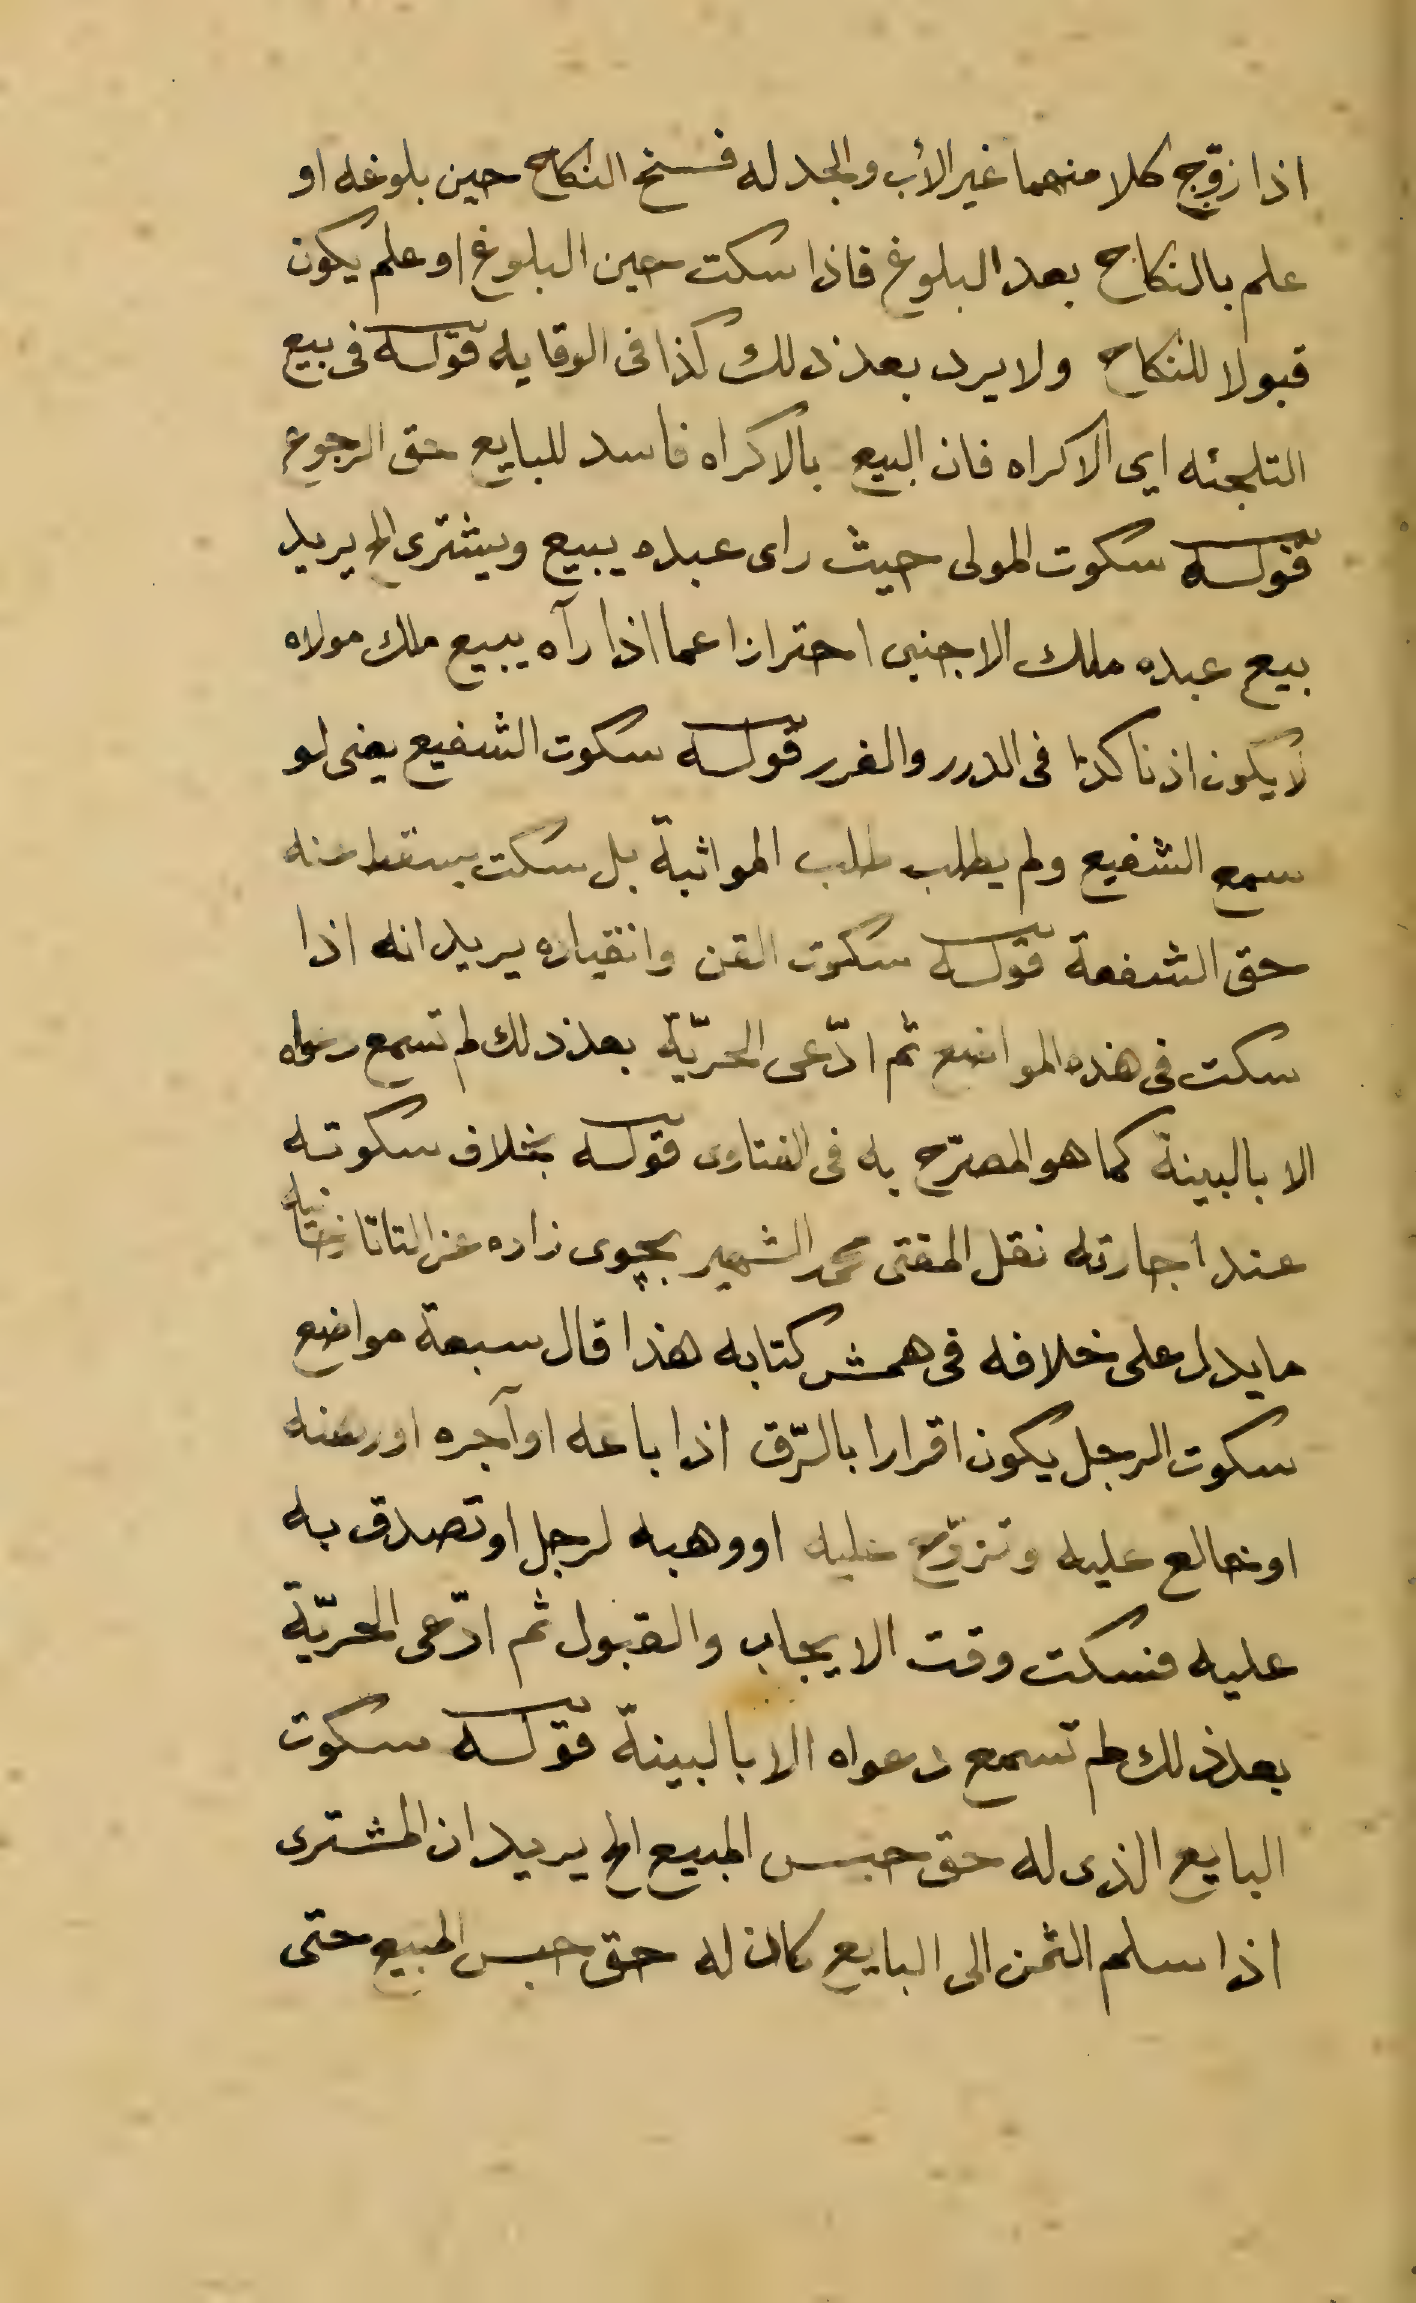 اذا زوّج كلا منهما غير الأب والجد له فسخ النكاح حين بلوغه او
علم بالنكاح بعد البلوغ فاذا سكت حين البلوغ او علم يكون
قبولا للنكاح ولا يرد بعد ذلك كذا فى الوقايه قوله فى بيع
التلجئه اى الاكراه فان البيع بالاكراه فاسد للبايع حق الرجوع
قوله سكوت المولى حيث راى عبده يبيع ويشترى الخ يريد
بيع عبده ملك الاجنبى احترازا عما اذا رآه يبيع ملك مولاه
لا يكون اذنا كذا فى الدرر والغرر قوله سكوت الشفيع يعنى لو
سمع الشفيع ولم يطلب طلب المواثبة بل سكت يسقط عنه
حق الشفعة قوله سكوت القن وانقياده يريد انه اذا
سكت فى هذه المواضع ثم ادّعى الحريّة بعد ذلك لم تسمع دعواه
الا بالبينة كما هو المصرّح به فى الفتاوى قوله بخلاف سكوته
عند اجارته نقل المفتى محمد الشهير بچوى زاده عن التاتارخانيه
ما يدل على خلافه فى همش كتابه هذا قال سبعة مواضع
سكوت الرجل يكون اقرارا بالرّق اذا باعه او آجره او رهنه
او خالع عليه وتزوّج عليه او وهبه لرجل او تصدق به
عليه فسكت وقت الايجاب والقبول ثم ادّعى الحريّة
بعد ذلك لم تسمع دعواه الا بالبينة قوله سكوت
البايع الذى له حق حبس المبيع الخ يريد ان المشترى
اذا سلم الثمن الى البايع كان له حق حبس المبيع حتى